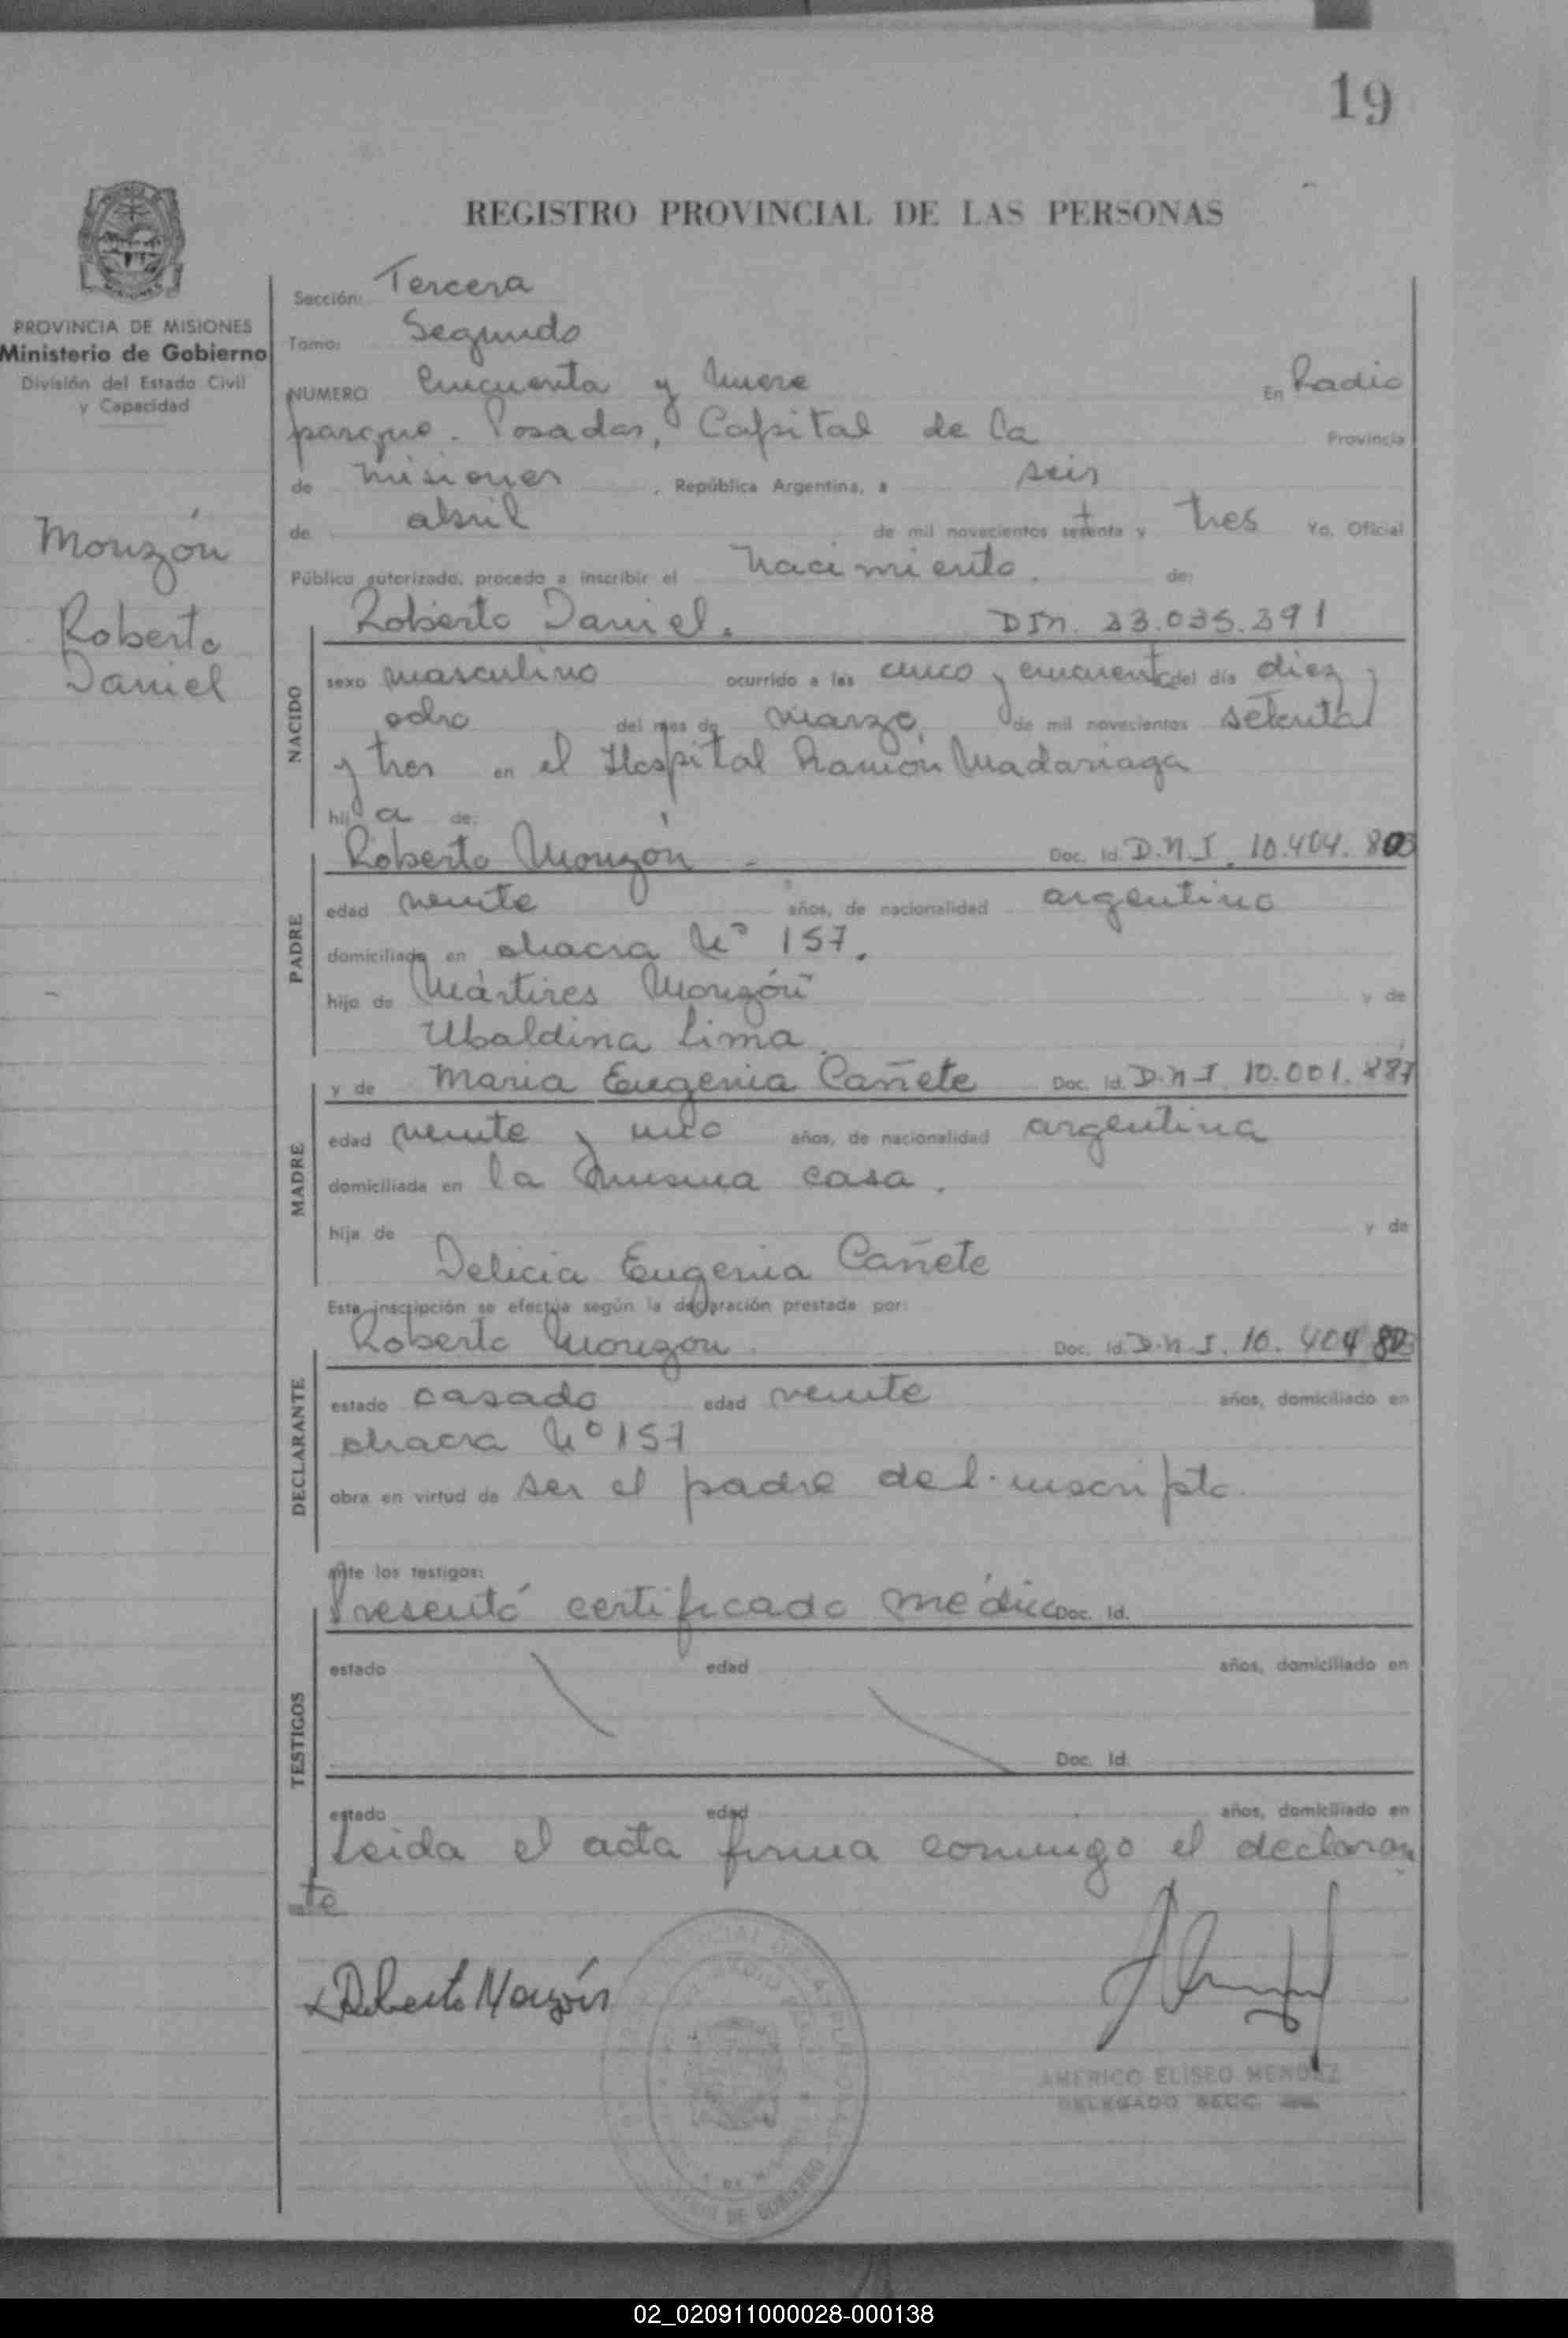 19
REGISTRO PROVINCIAL DE LAS PERSONAS
PROVINCIA DE MISIONES
Ministerio de Gobierno
División del Estado Civil
y Capacidad
Monzón
Roberto
Daniel
Sección: Tercera
Tomo: Segundo
NUMERO Cincuenta y Nueve En Radio
parque. Posadas, Capital de la Provincia
de Misiones, República Argentina, a seis
de abril de mil novecientos setenta y tres Yo, Oficial
Público autorizado, procedo a inscribir el Nacimiento. de:
Roberto Daniel. 23.035.391
NACIDO
sexo masculino ocurrido a las cinco y cincuenta del día diez y
ocho del mes de marzo, de mil novecientos setenta
y tres en el Hospital Ramón Madariaga
hij a de:
PADRE
Roberto Monzón Doc. Id. D.N.I. 10.404.
edad veinte años, de nacionalidad argentino
domiciliado en chacra Nº 157.
hijo de Mártires Monzón y de
Ubaldina Lima.
MADRE
y de Maria Eugenia Cañete Doc. Id. D.N.I. 10.001.887
edad veinte y uno años, de nacionalidad argentina
domiciliada en la misma casa.
hija de y de
Delicia Eugenia Cañete
Esta inscripción se efectúa según la declaración prestada por:
DECLARANTE
Roberto Monzón. Doc. Id. D.N.I. 10.404
estado casado edad veinte años, domiciliado en
chacra Nº 157
obra en virtud de ser el padre del inscripto.
TESTIGOS
ante los testigos:
Presentó certificado médico Doc. Id.
estado edad años, domiciliado en
Doc. Id.
estado edad años, domiciliado en
Leida el acta firma conmigo el declaran
te
Roberto Monzón
AMERICO ELISEO MENDEZ
DELEGADO SECC.
02_020911000028-000138